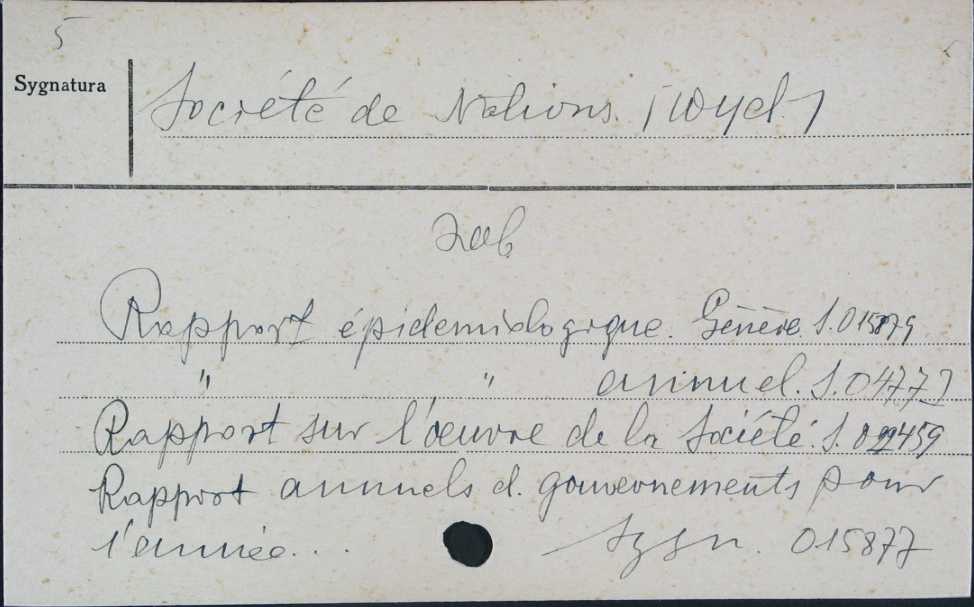 5
Sygnatura
Société de Nations. [Wyd.]
Rapport épidemiologique. Génève. S.015879
" " annuel. S.0477
Rapport sur l'oeuvre de la Société. S. 022459
Rapport annuels d. gouvernements pour
l'année... Sygn. 015877